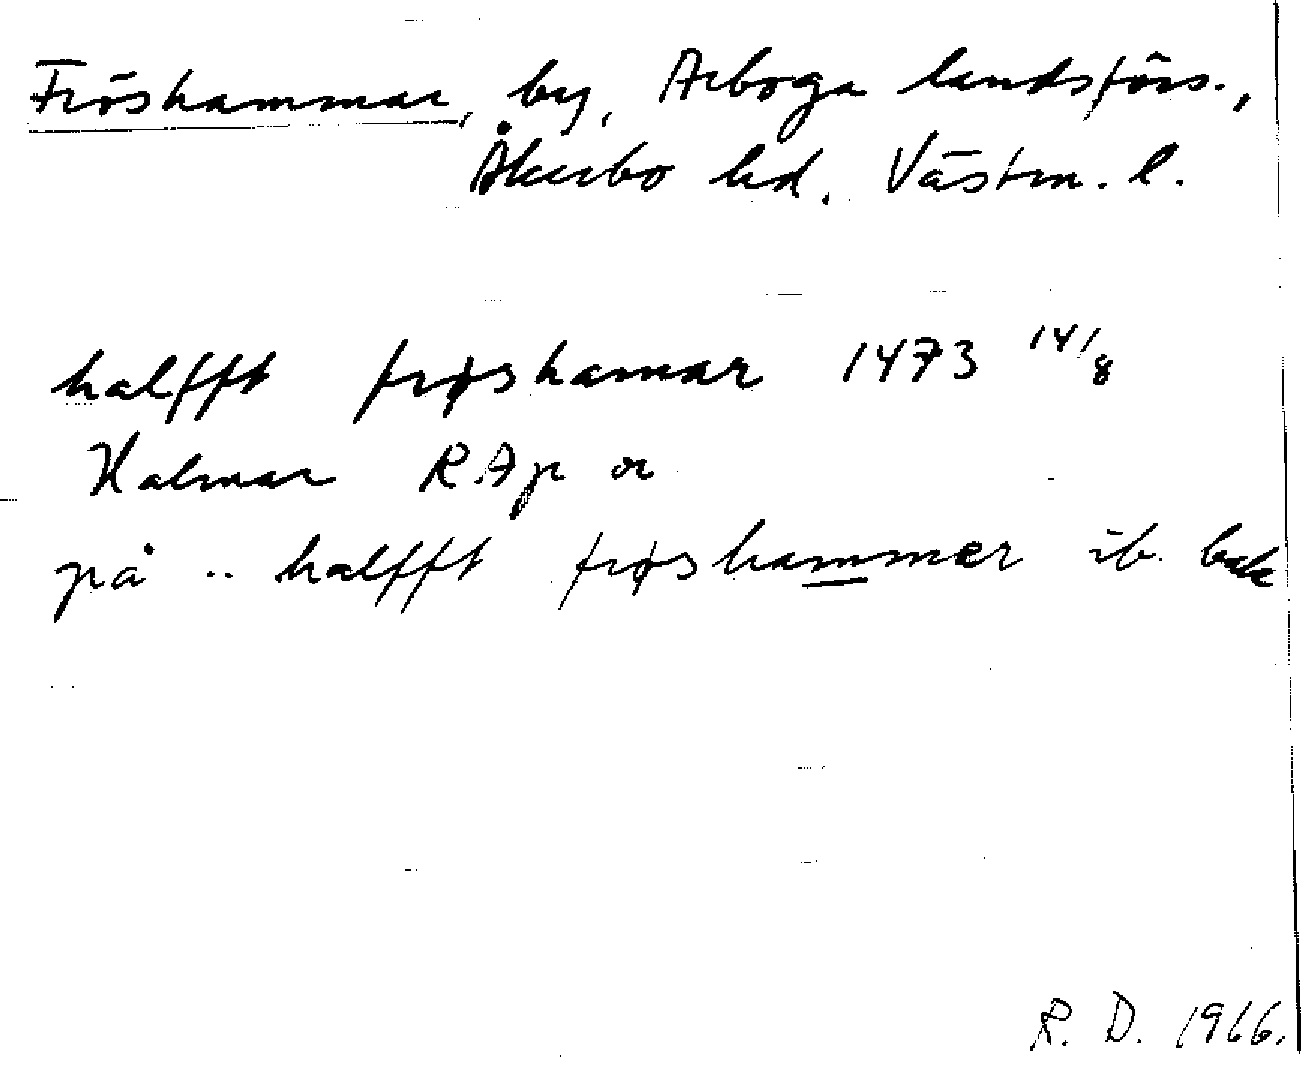 Fröshammar, by, Arboga landsförs.,
Åkerbo hd. Västm. l.
halfft frøshamar 1473 14/8
Kalmar RAp or
på .. halfft frøshammer ib. bak
R. D. 1966.